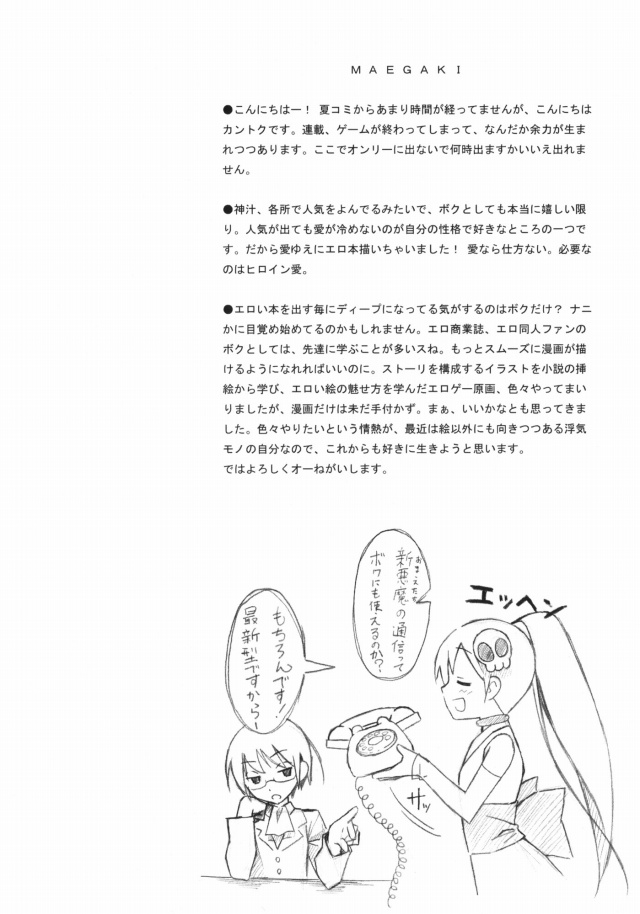 MAEGAKI
●こんにちはー！ 夏コミからあまり時間が経ってませんが、こんにちは
カントクです。連載、ゲームが終わってしまって、なんだか余力が生ま
れつつあります。ここでオンリーに出ないで何時出ますかいいえ出れま
せん。
●神汁、各所で人気をよんでるみたいで、ボクとしても本当に嬉しい限
り。人気が出ても愛が冷めないのが自分の性格で好きなところの一つで
す。だから愛ゆえにエロ本描いちゃいました！ 愛なら仕方ない。必要な
のはヒロイン愛。
●エロい本を出す毎にディープになってる気がするのはボクだけ？ ナニ
かに目覚め始めてるのかもしれません。エロ商業誌、エロ同人ファンの
ボクとしては、先達に学ぶことが多いスね。もっとスムーズに漫画が描
けるようになれればいいのに。ストーリを構成するイラストを小説の挿
絵から学び、エロい絵の魅せ方を学んだエロゲー原画、色々やってまい
りましたが、漫画だけは未だ手付かず。まぁ、いいかなとも思ってきま
した。色々やりたいという情熱が、最近は絵以外にも向きつつある浮気
モノの自分なので、これからも好きに生きようと思います。
ではよろしくオーねがいします。
エッヘン
おまえたち
新悪魔の通信って
ボクにも使えるのか？
もちろんです！
最新型ですからー
サッ